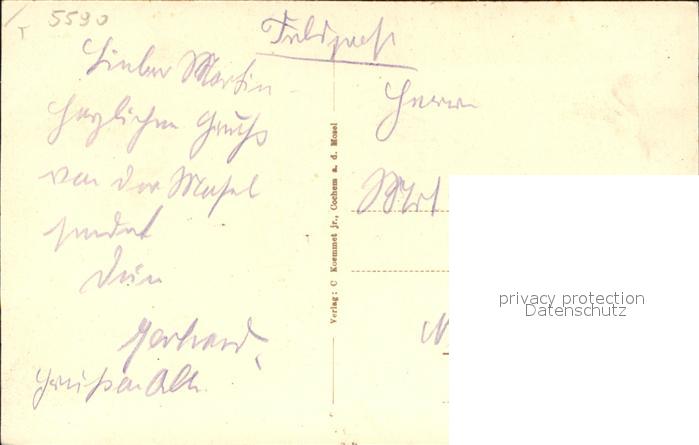 5590
Feldpost
Lieber Martin
herzlichen Gruß
von der Mosel
sendet
Dein
Gerhard.
Grüße an Alle.
Verlag: C Koemmet jr., Cochem a. d. Mosel
Herrn
privacy protection
Datenschutz